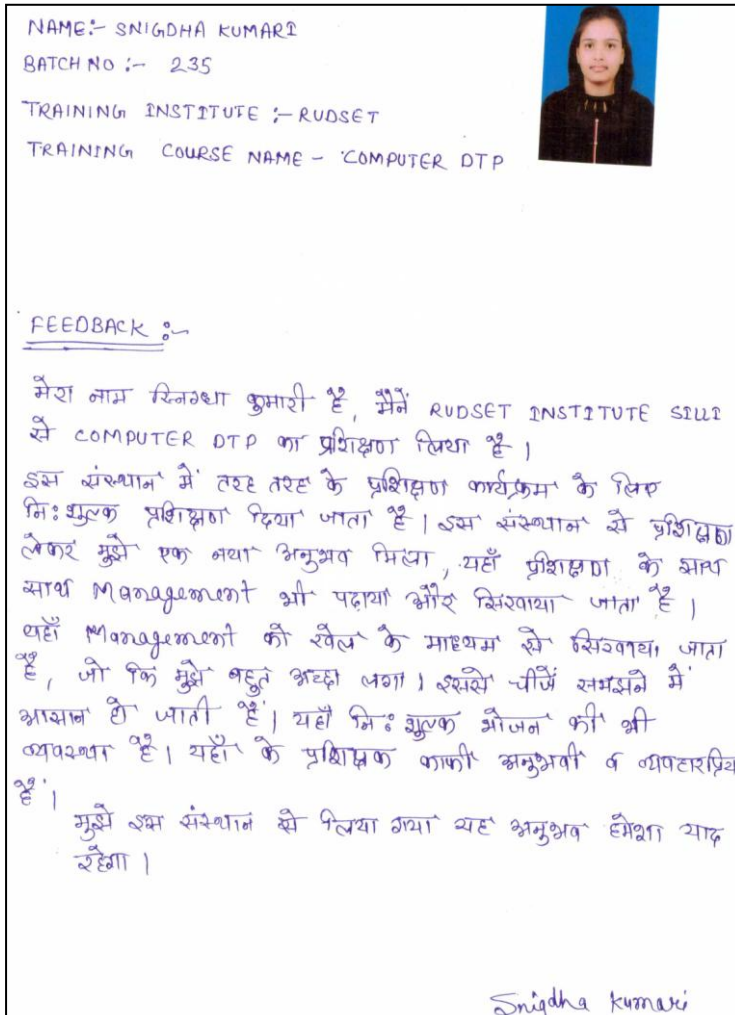 NAME:- SNIGDHA KUMARI
BATCH NO :- 235
TRAINING INSTITUTE :- RUDSET
TRAINING COURSE NAME - COMPUTER DTP
FEEDBACK :-
मेरा नाम स्निग्धा कुमारी है, मैनें RUDSET INSTITUTE SILLI
से COMPUTER DTP का प्रशिक्षण लिया है।
इस संस्थान में तरह तरह के प्रशिक्षण कार्यक्रम के लिए
नि:शुल्क प्रशिक्षण दिया जाता है। इस संस्थान से प्रशिक्षण
लेकर मुझे एक नया अनुभव मिला, यहाँ प्रशिक्षण के साथ
साथ Management भी पढ़ाया और सिखाया जाता है।
यहाँ Management को खेल के माध्यम से सिखाया जाता
है, जो कि मुझे बहुत अच्छा लगा। इससे चीजें समझने में
आसान हो जाती हैं। यहाँ नि:शुल्क भोजन की भी
व्यवस्था है। यहाँ के प्रशिक्षक काफी अनुभवी व व्यवहारप्रिय
हैं।
मुझे इस संस्थान से लिया गया यह अनुभव हमेशा याद
रहेगा।
Snigdha Kumari